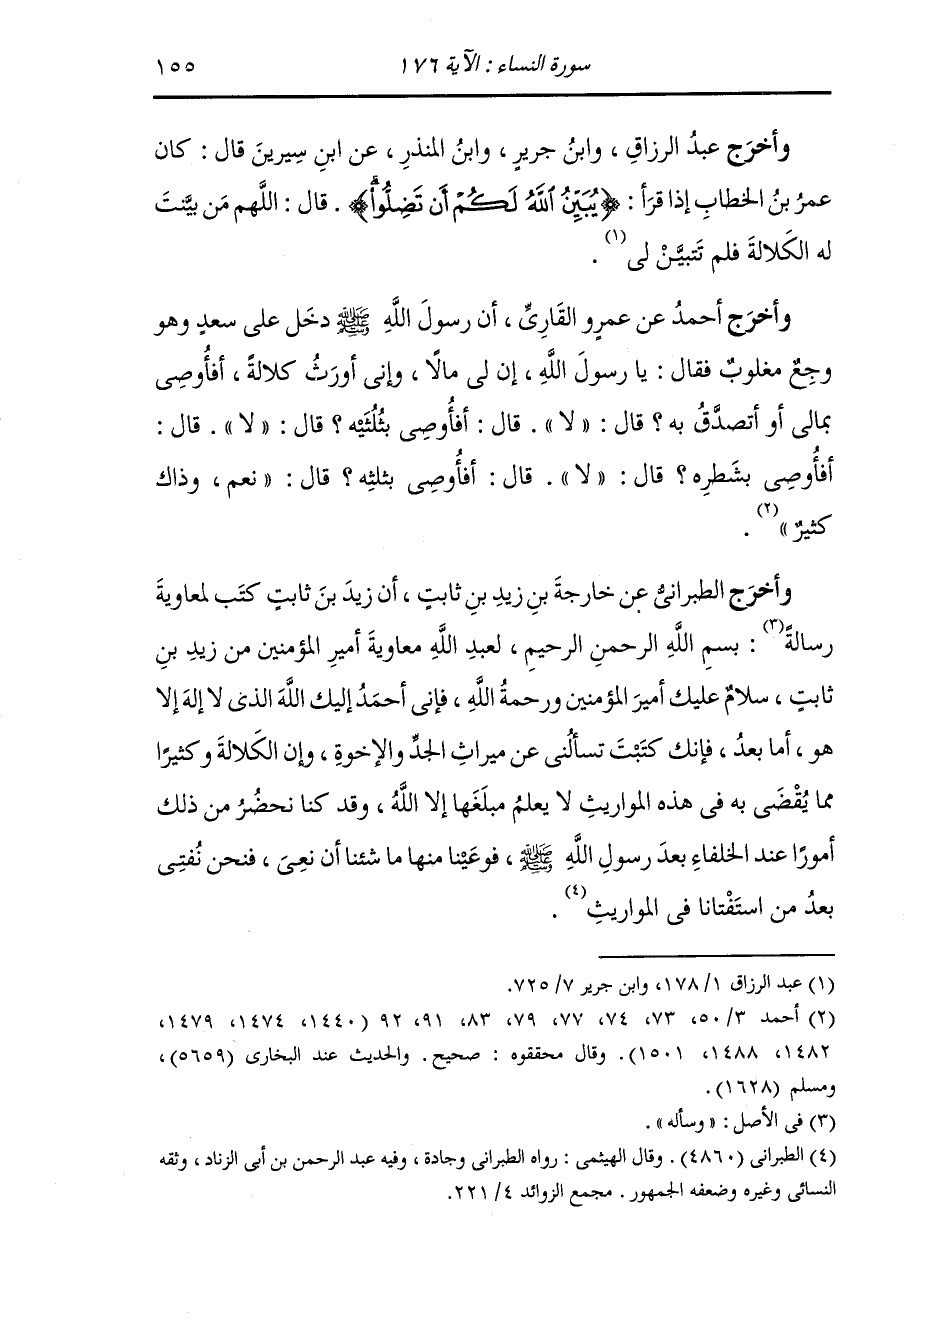 سورة النساء : الآية ١٧٦ ١٥٥
وأخرَج عبدُ الرزاقِ ، وابنُ جريرٍ ، وابنُ المنذرِ ، عن ابنِ سِيرينَ قال : كان
عمرُ بنُ الخطابِ إذا قرَأ : ﴿يُبَيِّنُ ٱللَّهُ لَكُمْ أَن تَضِلُّواْۗ﴾ . قال : اللَّهم مَن بيَّنتَ
له الكَلالةَ فلم تَتبيَّنْ لى(١) .
وأخرَج أحمدُ عن عمرٍو القَارِئِّ ، أن رسولَ اللَّهِ ﷺ دخَل على سعدٍ وهو
وجِعٌ مغلوبٌ فقال : يا رسولَ اللَّهِ ، إن لى مالًا ، وإنى أورَثُ كلالةً ، أفأُوصِى
بمالى أو أتصدَّقُ به ؟ قال : « لا » . قال : أفأُوصِى بثُلُثَيْه ؟ قال : « لا » . قال :
أفأُوصِى بشَطرِه ؟ قال : « لا » . قال : أفأُوصِى بثلثِه ؟ قال : « نعم ، وذاك
كثيرٌ »(٢) .
وأخرَج الطبرانىُّ عن خارجةَ بنِ زيدِ بنِ ثابتٍ ، أن زيدَ بنَ ثابتٍ كتَب لمعاويةَ
رسالةً(٣) : بسمِ اللَّهِ الرحمنِ الرحيمِ ، لعبدِ اللَّهِ معاويةَ أميرِ المؤمنين من زيدِ بنِ
ثابتٍ ، سلامٌ عليك أميرَ المؤمنين ورحمةُ اللَّهِ ، فإنى أحمَدُ إليك اللَّهَ الذى لا إلهَ إلا
هو ، أما بعدُ ، فإنك كتَبْتَ تسألُنى عن ميراثِ الجدِّ والإخوةِ ، وإن الكَلالةَ وكثيرًا
مما يُقْضَى به فى هذه المواريثِ لا يعلمُ مبلَغَها إلا اللَّهُ ، وقد كنا نحضُرُ من ذلك
أمورًا عند الخلفاءِ بعدَ رسولِ اللَّهِ ﷺ ، فوعَيْنا منها ما شئنا أن نعِىَ ، فنحن نُفتِى
بعدُ من استَفْتانا فى المواريثِ(٤) .
(١) عبد الرزاق ١/ ١٧٨، وابن جرير ٧/ ٧٢٥.
(٢) أحمد ٣/ ٥٠، ٧٣، ٧٤، ٧٧، ٧٩، ٨٣، ٩١، ٩٢ (١٤٤٠، ١٤٧٤، ١٤٧٩،
١٤٨٢، ١٤٨٨، ١٥٠١). وقال محققوه : صحيح . والحديث عند البخارى (٥٦٥٩)،
ومسلم (١٦٢٨).
(٣) فى الأصل : « وسأله » .
(٤) الطبرانى (٤٨٦٠). وقال الهيثمى : رواه الطبرانى وجادة ، وفيه عبد الرحمن بن أبى الزناد ، وثقه
النسائى وغيره وضعفه الجمهور . مجمع الزوائد ٤/ ٢٢١.